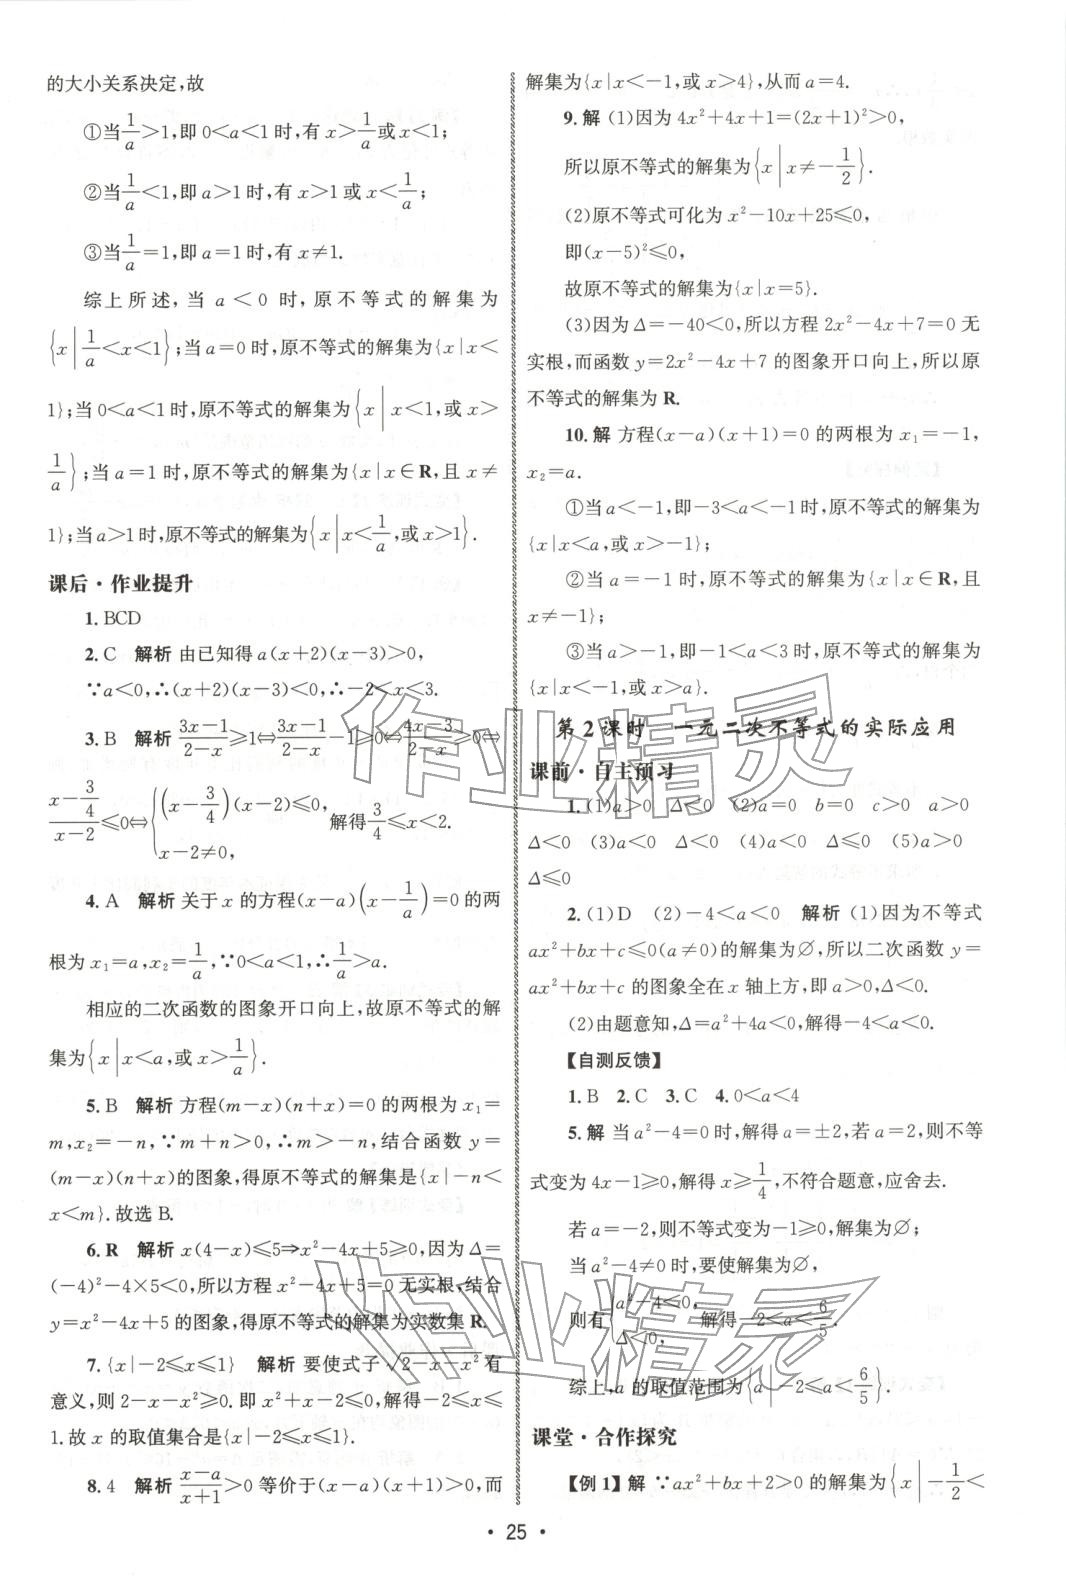 的大小关系决定,故
①当1/a>1,即0<a<1时,有x>1/a或x<1;
②当1/a<1,即a>1时,有x>1或x<1/a;
③当1/a=1,即a=1时,有x≠1.
综上所述,当a<0时,原不等式的解集为
{x|1/a<x<1};当a=0时,原不等式的解集为{x|x<
1};当0<a<1时,原不等式的解集为{x|x<1,或x>
1/a};当a=1时,原不等式的解集为{x|x∈R,且x≠
1};当a>1时,原不等式的解集为{x|x<1/a,或x>1}.
课后·作业提升
1. BCD
2. C 解析 由已知得a(x+2)(x-3)>0,
∵a<0,∴(x+2)(x-3)<0,∴-2<x<3.
3. B 解析 (3x-1)/(2-x)≥1⇔(3x-1)/(2-x)-1≥0⇔(4x-3)/(2-x)≥0⇔
(x-3/4)/(x-2)≤0⇔{(x-3/4)(x-2)≤0, x-2≠0, 解得3/4≤x<2.
4. A 解析 关于x的方程(x-a)(x-1/a)=0的两
根为x₁=a,x₂=1/a,∵0<a<1,∴1/a>a.
相应的二次函数的图象开口向上,故原不等式的解
集为{x|x<a,或x>1/a}.
5. B 解析 方程(m-x)(n+x)=0的两根为x₁=
m,x₂=-n,∵m+n>0,∴m>-n,结合函数y=
(m-x)(n+x)的图象,得原不等式的解集是{x|-n<
x<m}.故选B.
6. R 解析 x(4-x)≤5⇒x²-4x+5≥0,因为Δ=
(-4)²-4×5<0,所以方程x²-4x+5=0无实根,结合
y=x²-4x+5的图象,得原不等式的解集为实数集R.
7. {x|-2≤x≤1} 解析 要使式子√(2-x-x²)有
意义,则2-x-x²≥0.即x²+x-2≤0,解得-2≤x≤
1.故x的取值集合是{x|-2≤x≤1}.
8. 4 解析 (x-a)/(x+1)>0等价于(x-a)(x+1)>0,而
解集为{x|x<-1,或x>4},从而a=4.
9. 解 (1)因为4x²+4x+1=(2x+1)²>0,
所以原不等式的解集为{x|x≠-1/2}.
(2)原不等式可化为x²-10x+25≤0,
即(x-5)²≤0,
故原不等式的解集为{x|x=5}.
(3)因为Δ=-40<0,所以方程2x²-4x+7=0无
实根,而函数y=2x²-4x+7的图象开口向上,所以原
不等式的解集为R.
10. 解 方程(x-a)(x+1)=0的两根为x₁=-1,
x₂=a.
①当a<-1,即-3<a<-1时,原不等式的解集为
{x|x<a,或x>-1};
②当a=-1时,原不等式的解集为{x|x∈R,且
x≠-1};
③当a>-1,即-1<a<3时,原不等式的解集为
{x|x<-1,或x>a}.
第2课时 一元二次不等式的实际应用
课前·自主预习
1. (1)a>0 Δ<0 (2)a=0 b=0 c>0 a>0
Δ<0 (3)a<0 Δ<0 (4)a<0 Δ≤0 (5)a>0
Δ≤0
2. (1)D (2)-4<a<0 解析 (1)因为不等式
ax²+bx+c≤0(a≠0)的解集为∅,所以二次函数y=
ax²+bx+c的图象全在x轴上方,即a>0,Δ<0.
(2)由题意知,Δ=a²+4a<0,解得-4<a<0.
【自测反馈】
1. B 2. C 3. C 4. 0<a<4
5. 解 当a²-4=0时,解得a=±2,若a=2,则不等
式变为4x-1≥0,解得x≥1/4,不符合题意,应舍去.
若a=-2,则不等式变为-1≥0,解集为∅;
当a²-4≠0时,要使解集为∅,
则有{a²-4<0, Δ<0, 解得-2<a<6/5.
综上,a的取值范围为{a|-2≤a<6/5}.
课堂·合作探究
【例1】解 ∵ax²+bx+2>0的解集为{x|-1/2<
• 25 •
作业精灵
作业精灵